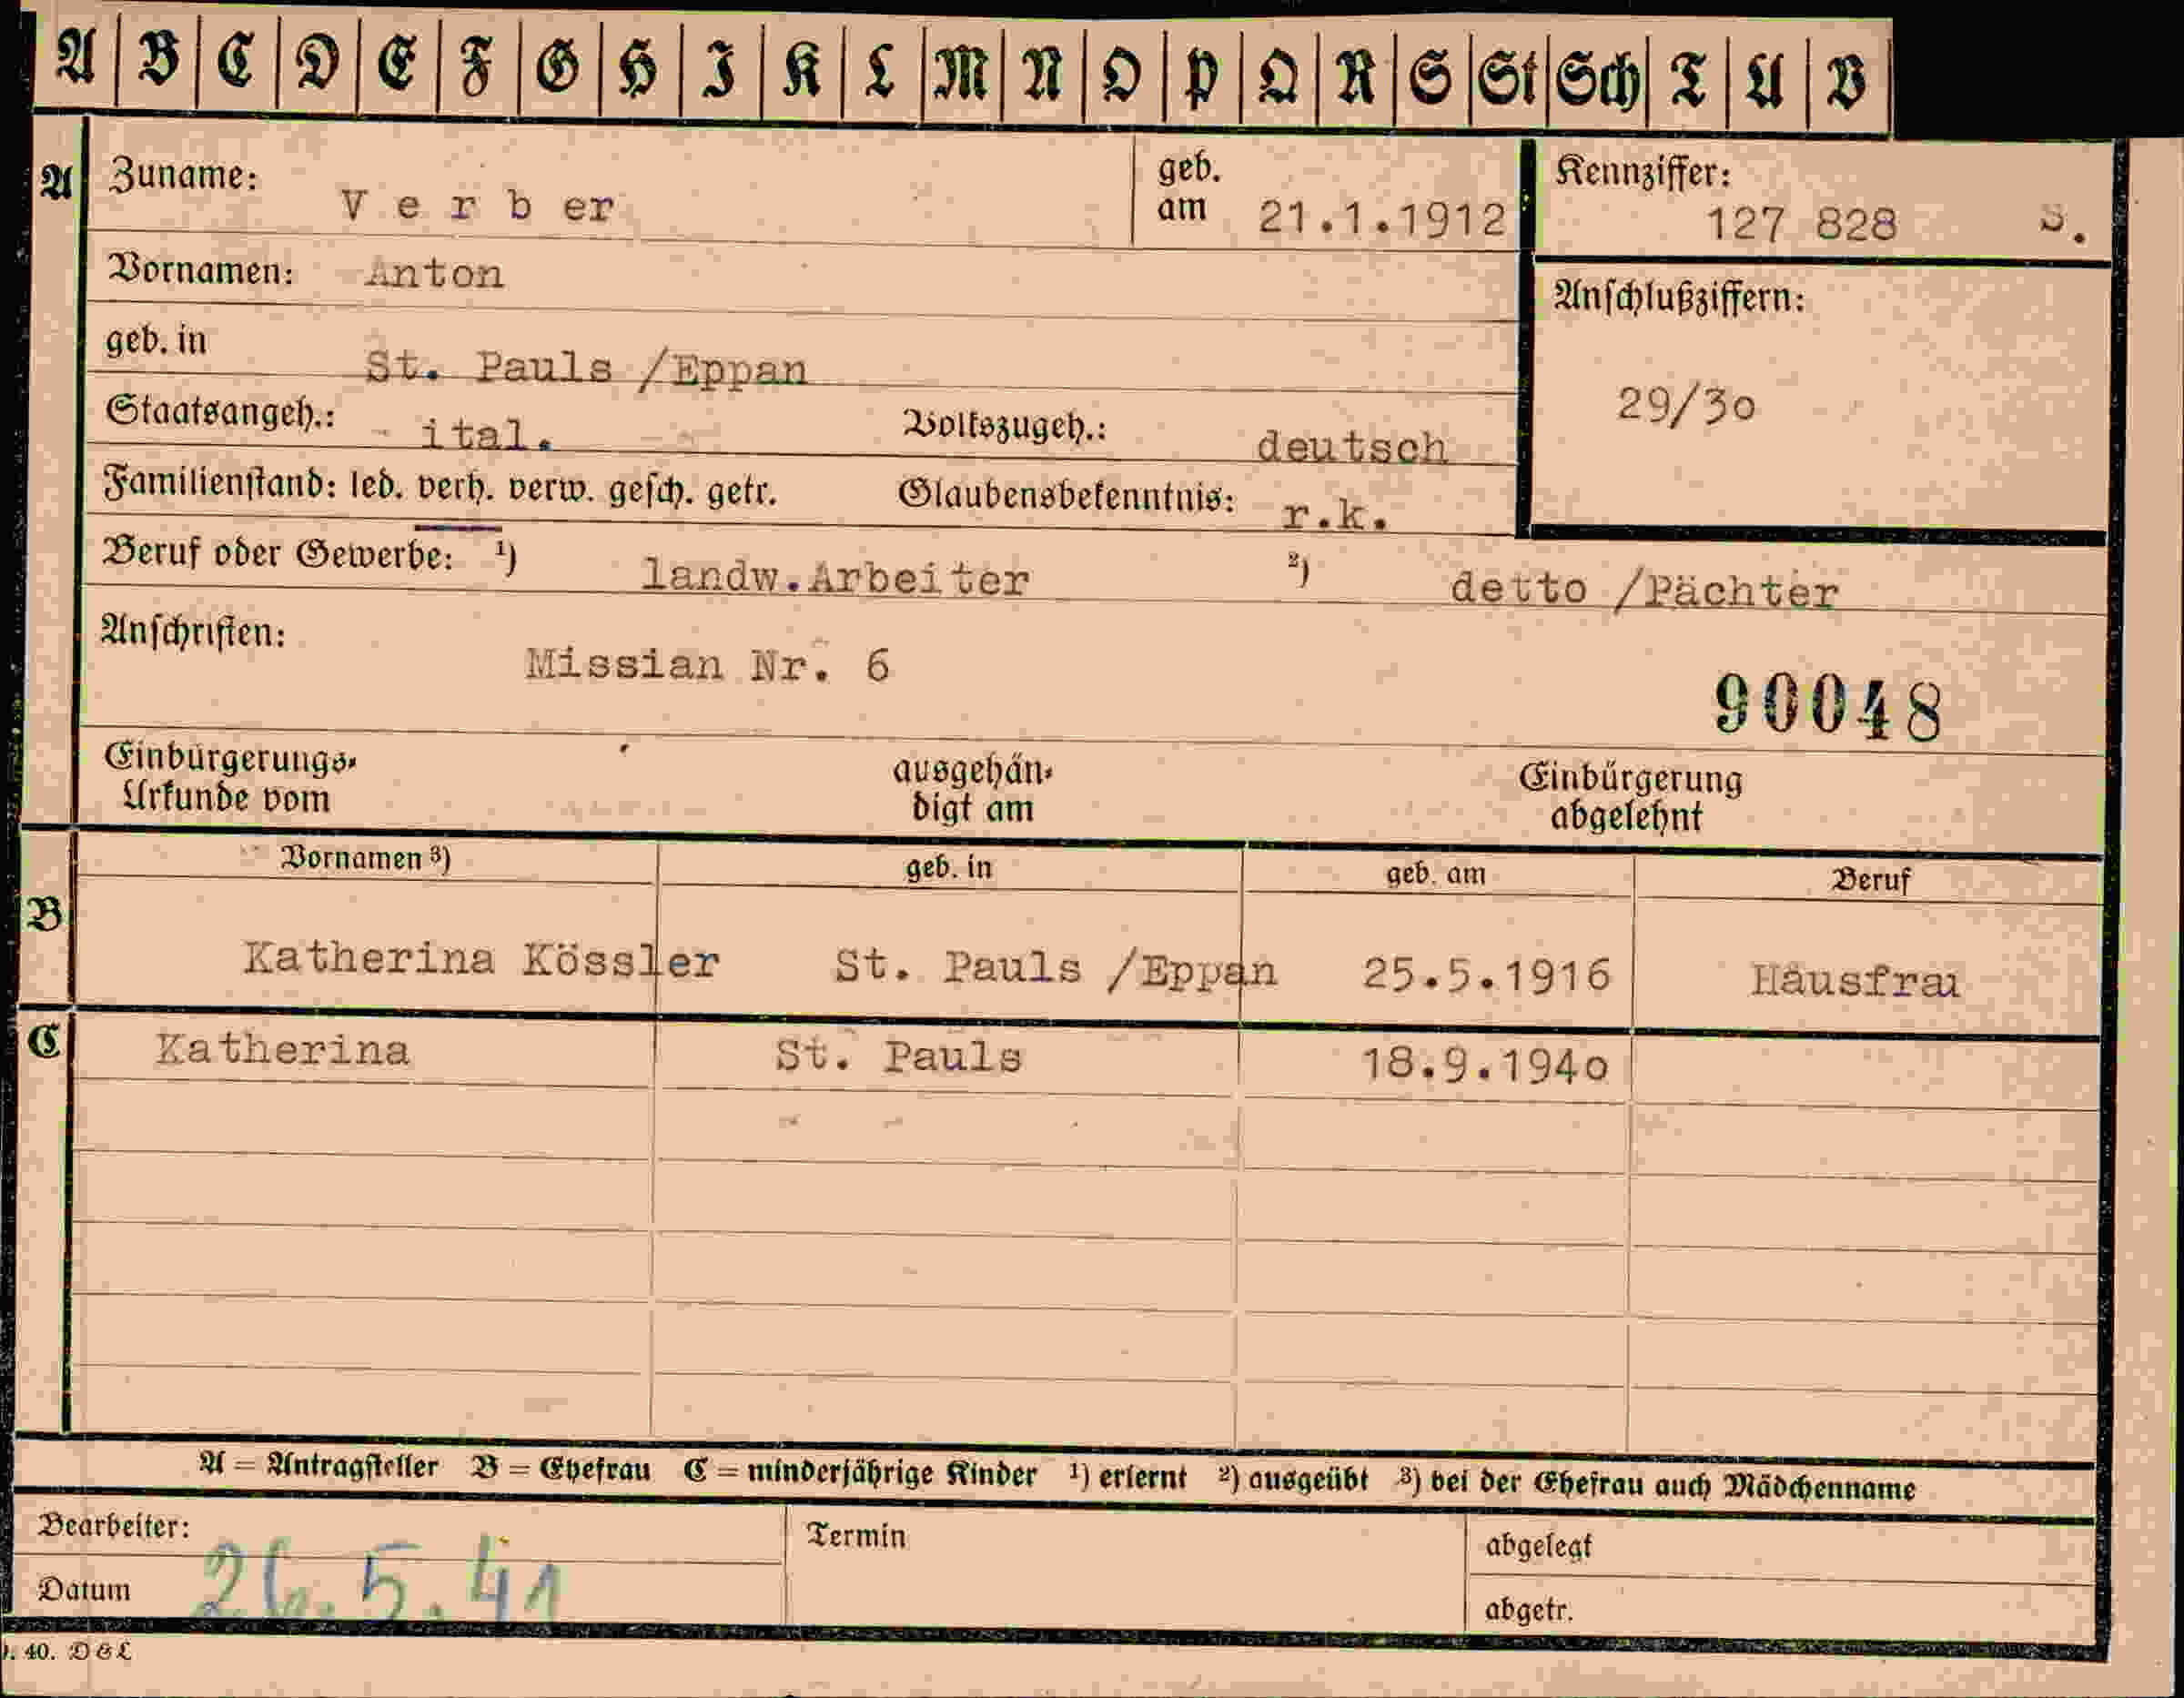 A B C D E F G H I K L M N O P Q R S St Sch T U V
A Zuname: Verber geb. am 21.1.1912 Kennziffer: 127 828
Vornamen: Anton
Anschlußziffern: 29/30
geb. in St. Pauls /Eppan
Staatsangeh.: ital. Volkszugeh.: deutsch
Familienstand: led. verh. verw. gesch. getr. Glaubensbekenntnis: r.k.
Beruf oder Gewerbe: ¹) landw.Arbeiter ²) detto /Pächter
Anschriften: Missian Nr. 6
90048
Einbürgerungs-Urkunde vom ausgehändigt am Einbürgerung abgelehnt
Vornamen ³) geb. in geb. am Beruf
B Katherina Kössler St. Pauls /Eppan 25.5.1916 Hausfrau
C Katherina St. Pauls 18.9.1940
A = Antragsteller B = Ehefrau C = minderjährige Kinder ¹) erlernt ²) ausgeübt ³) bei der Ehefrau auch Mädchenname
Bearbeiter: Termin abgelegt
Datum 26.5.41 abgetr.
40. D&L